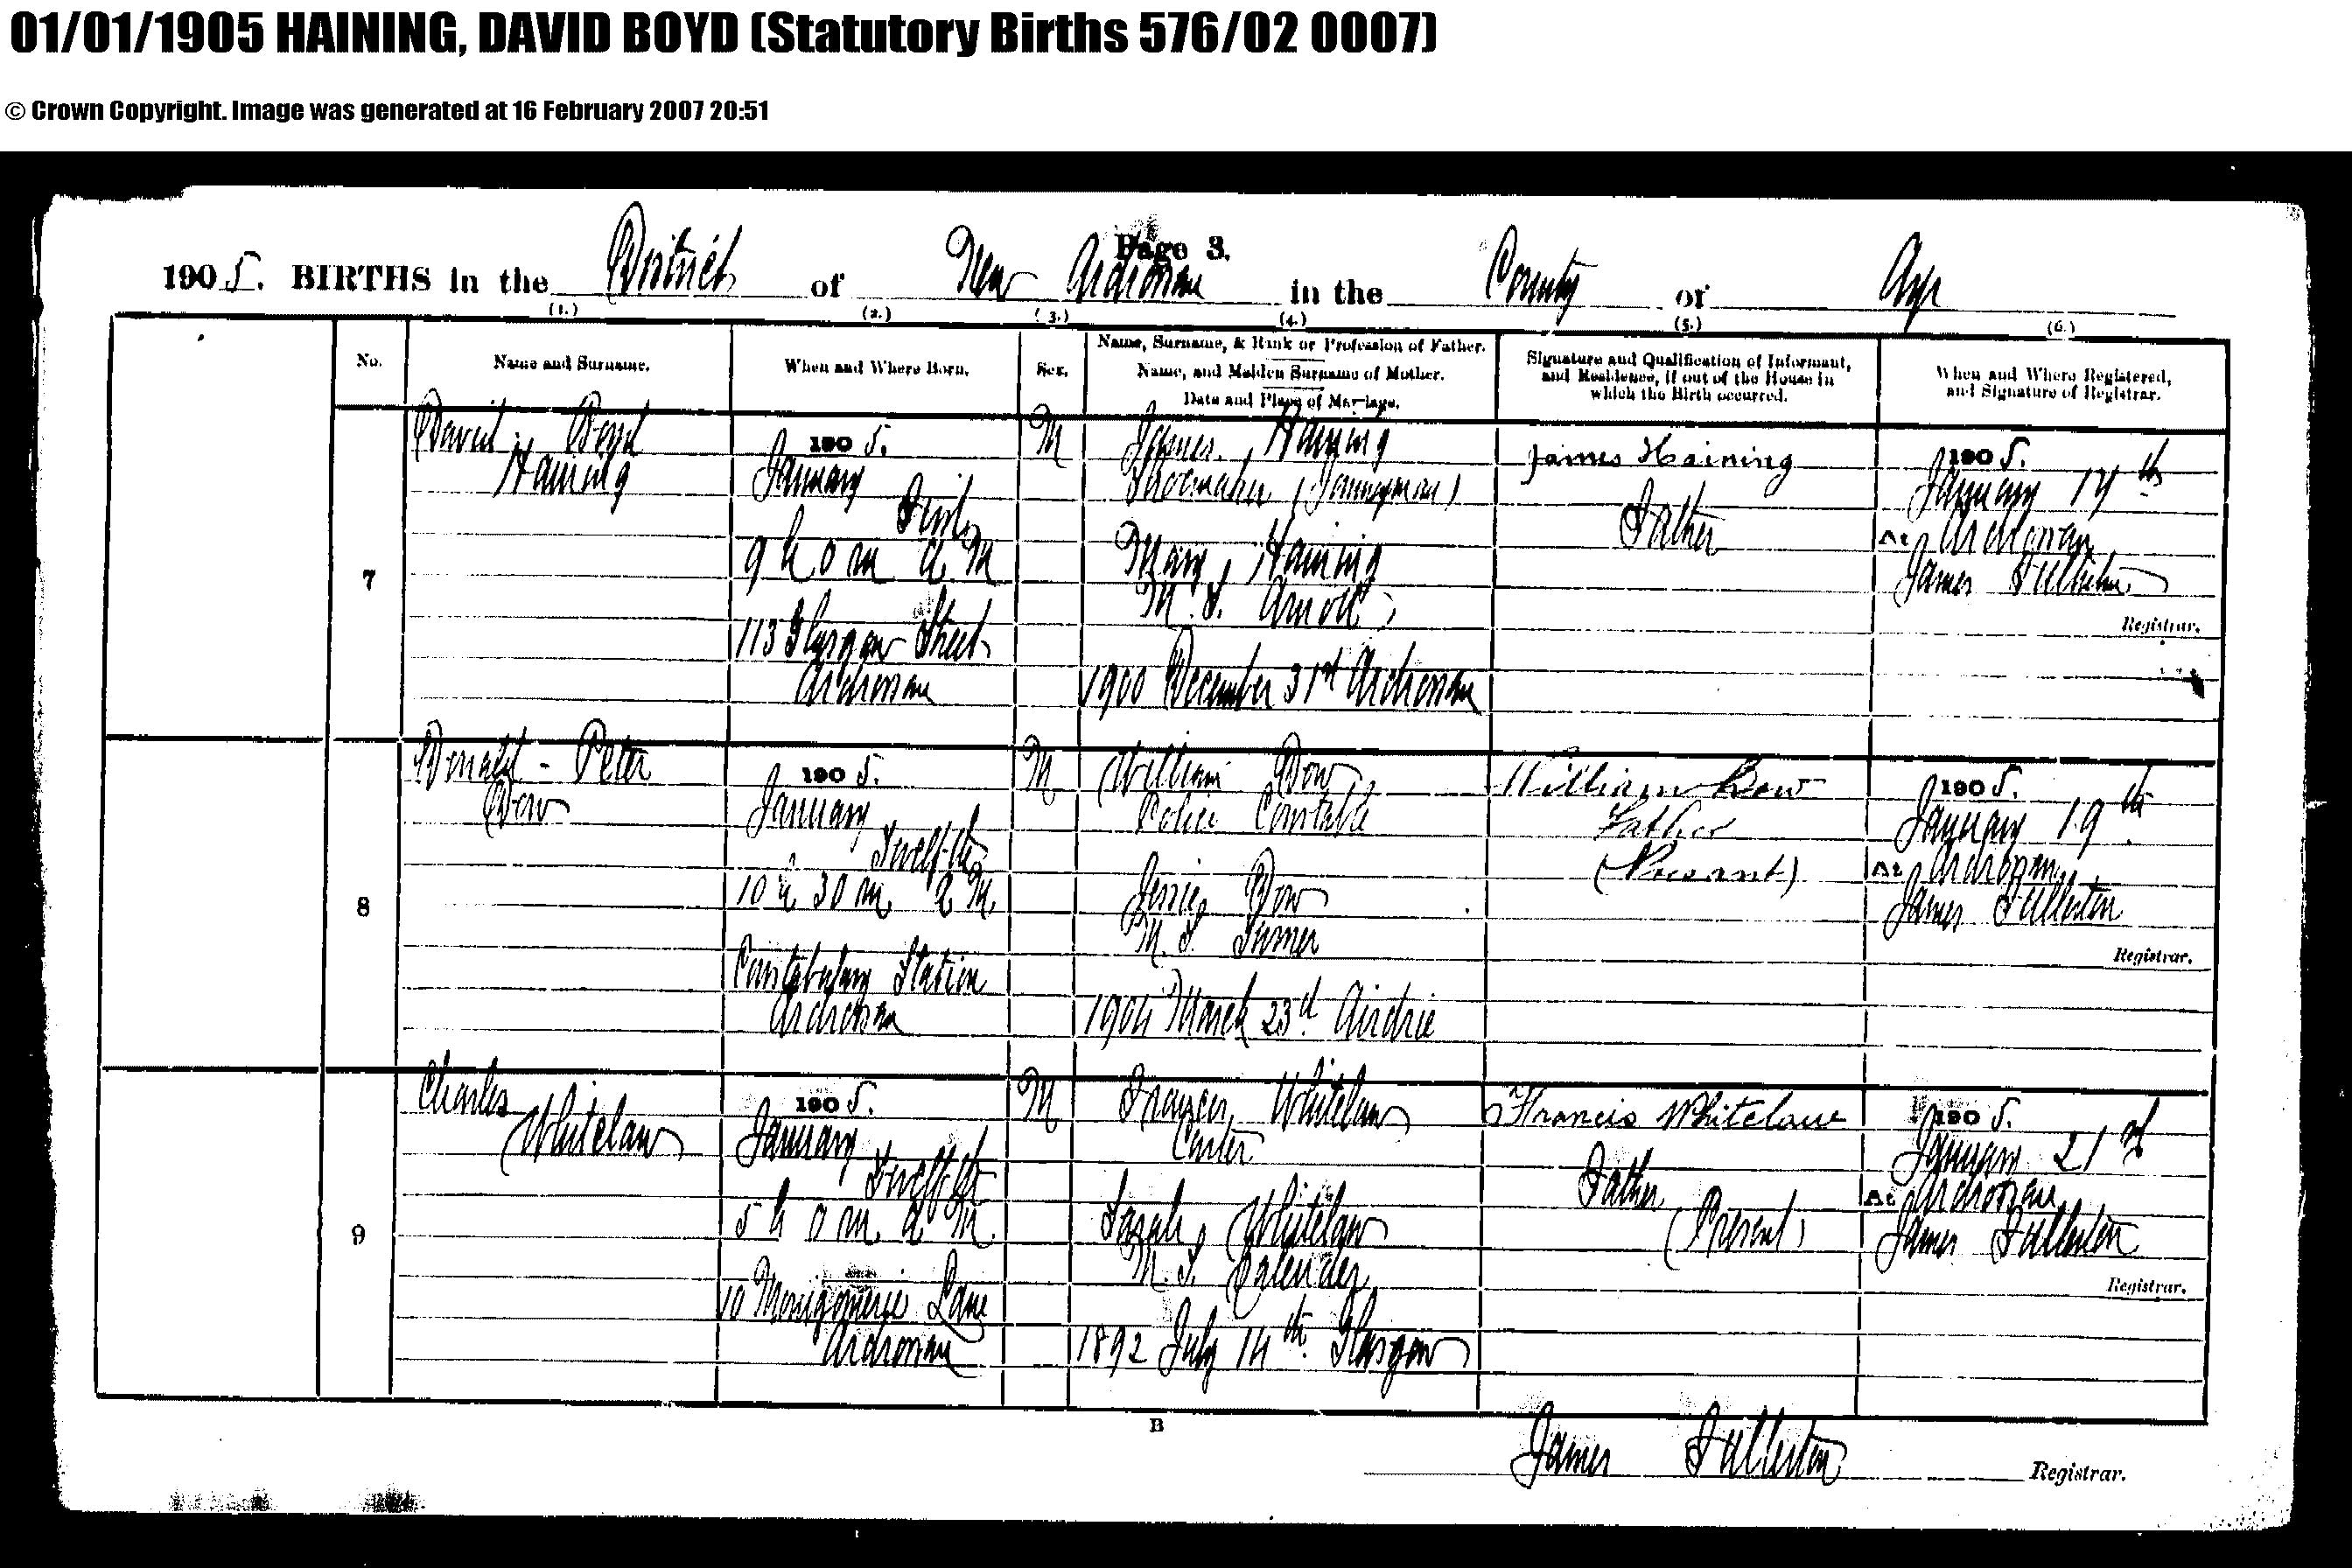 01/01/1905 HAINING, DAVID BOYD (Statutory Births 576/02 0007)
© Crown Copyright. Image was generated at 16 February 2007 20:51
Page 3.
1905. BIRTHS in the District of New Ardrossan in the County of Ayr
(1.) (2.) (3.) (4.) (5.) (6.)
No.
Name and Surname.
When and Where Born.
Sex.
Name, Surname, & Rank or Profession of Father.
Name, and Maiden Surname of Mother.
Date and Place of Marriage.
Signature and Qualification of Informant,
and Residence, if out of the House in
which the Birth occurred.
When and Where Registered,
and Signature of Registrar.
7
David Boyd
Haining
1905.
January
First
9 h 0 m A M
113 Glasgow Street
Ardrossan
M
James Haining
Shoemaker (Journeyman)
Mary Haining
M. S. Arnott
1900 December 31st Ardrossan
James Haining
Father
1905.
January 17th
At Ardrossan
James Fullerton
Registrar.
8
Donald - Peter
Dow
1905.
January
Twelfth
10 h 30 m A M
Constabulary Station
Ardrossan
M
William Dow
Police Constable
Jessie Dow
M. S. Turner
1904 March 23d Airdrie
William Dow
Father
(Present)
1905.
January 19th
At Ardrossan
James Fullerton
Registrar.
9
Charles
Whitelaw
1905.
January
Twelfth
5 h 0 m A M
10 Montgomerie Lane
Ardrossan
M
Francis Whitelaw
Carter
Sarah Whitelaw
M. S. Calender
1892 July 14th Glasgow
Francis Whitelaw
Father
(Present)
1905.
January 21st
At Ardrossan
James Fullerton
Registrar.
B
James Fullerton Registrar.